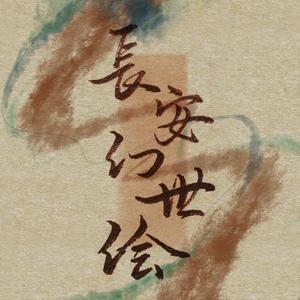 長安幻世绘